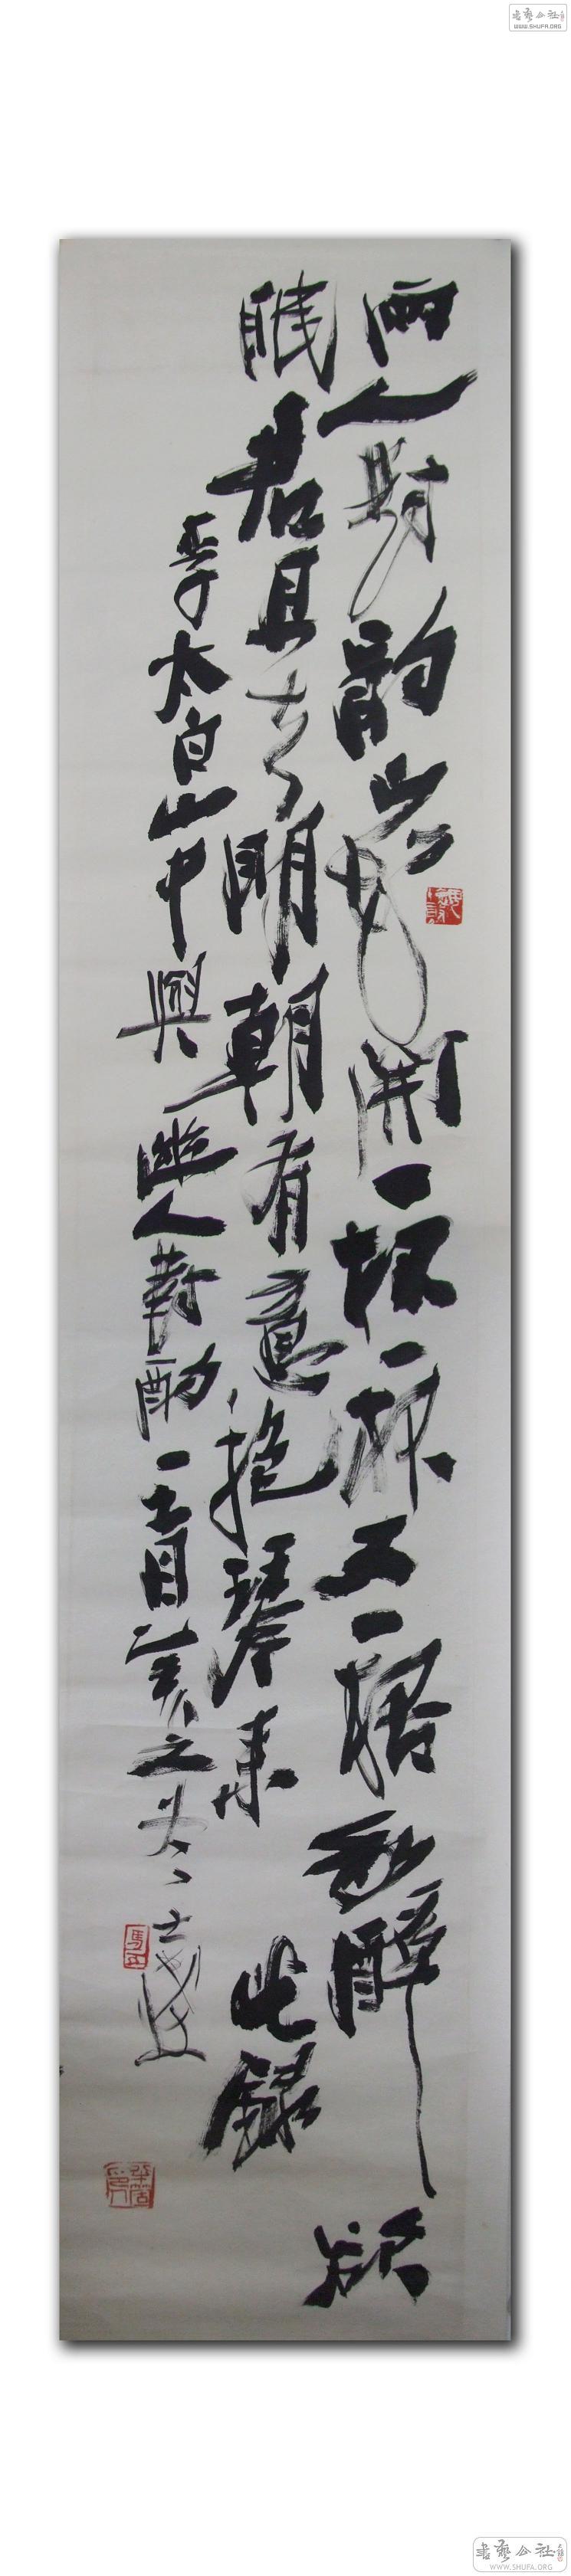 兩人對酌山花開一杯一杯又一杯我醉欲
眠君且去明朝有意抱琴來 此錄
李太白山中與幽人對酌
書藝公社
WWW.SHUFA.ORG
書藝公社
WWW.SHUFA.ORG